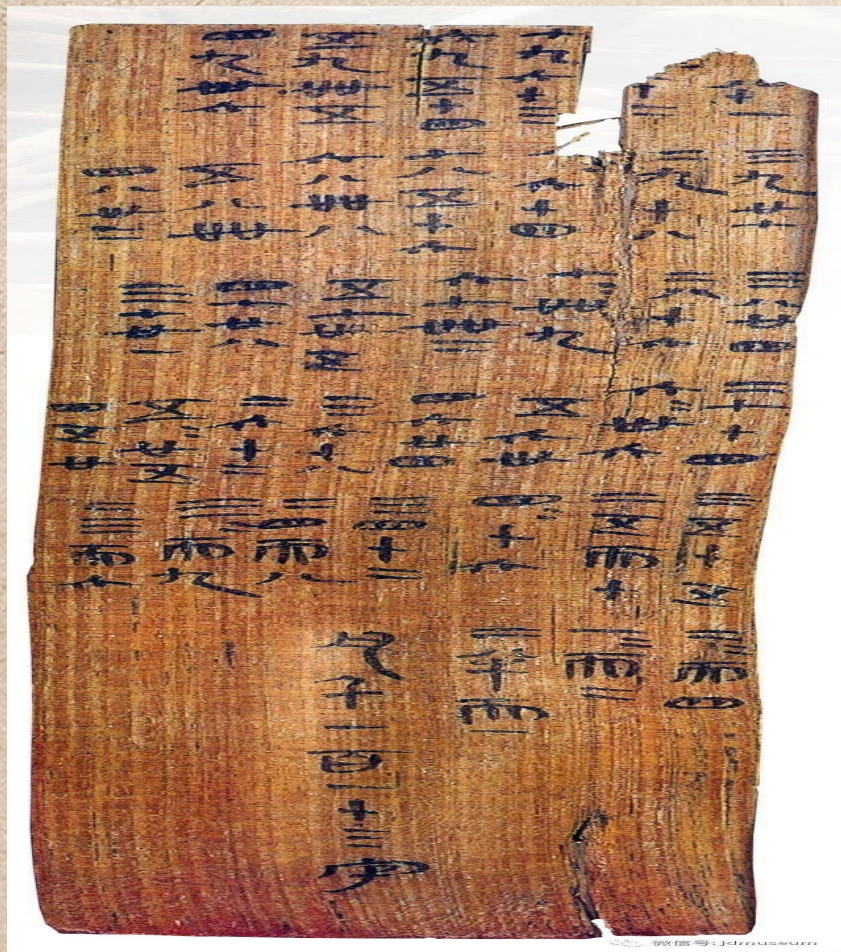 十一
十二
七九六十三
六九五十四
五九卌五
四九卅六
三九廿七
二九十八
六十四
七八五十六
六八卌八
五八卌
四八卅二
三八廿四
二八十六
七七卌九
六七卌二
五七卅五
四七廿八
三七廿一
二七十四
六六卅六
五六卅
四六廿四
三六十八
二六十二
五五廿五
四五廿
三五十五
二五而十
四四十六
三四十二
二四而八
三三而九
二三而六
二二而四
一一而二
二半而一
凡千一百一十三字
微信号:jdmuseum